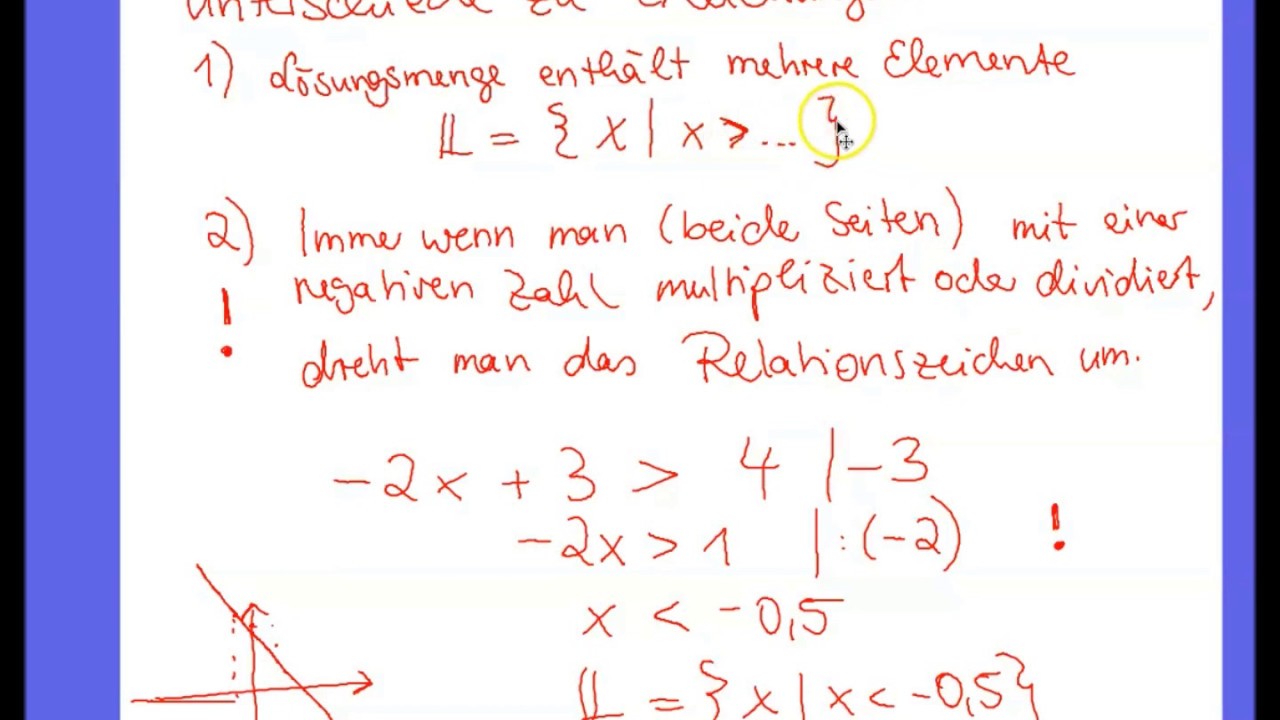 Unterschiede zu
1) Lösungsmenge enthält mehrere Elemente
𝕃 = { x | x > ... }
2) Imme wenn man (beide Seiten) mit einer
! negativen Zahl multipliziert oder dividiert,
dreht man das Relationszeichen um.
-2x + 3 > 4 | -3
-2x > 1 | : (-2) !
x < -0,5
𝕃 = { x | x < -0,5 }